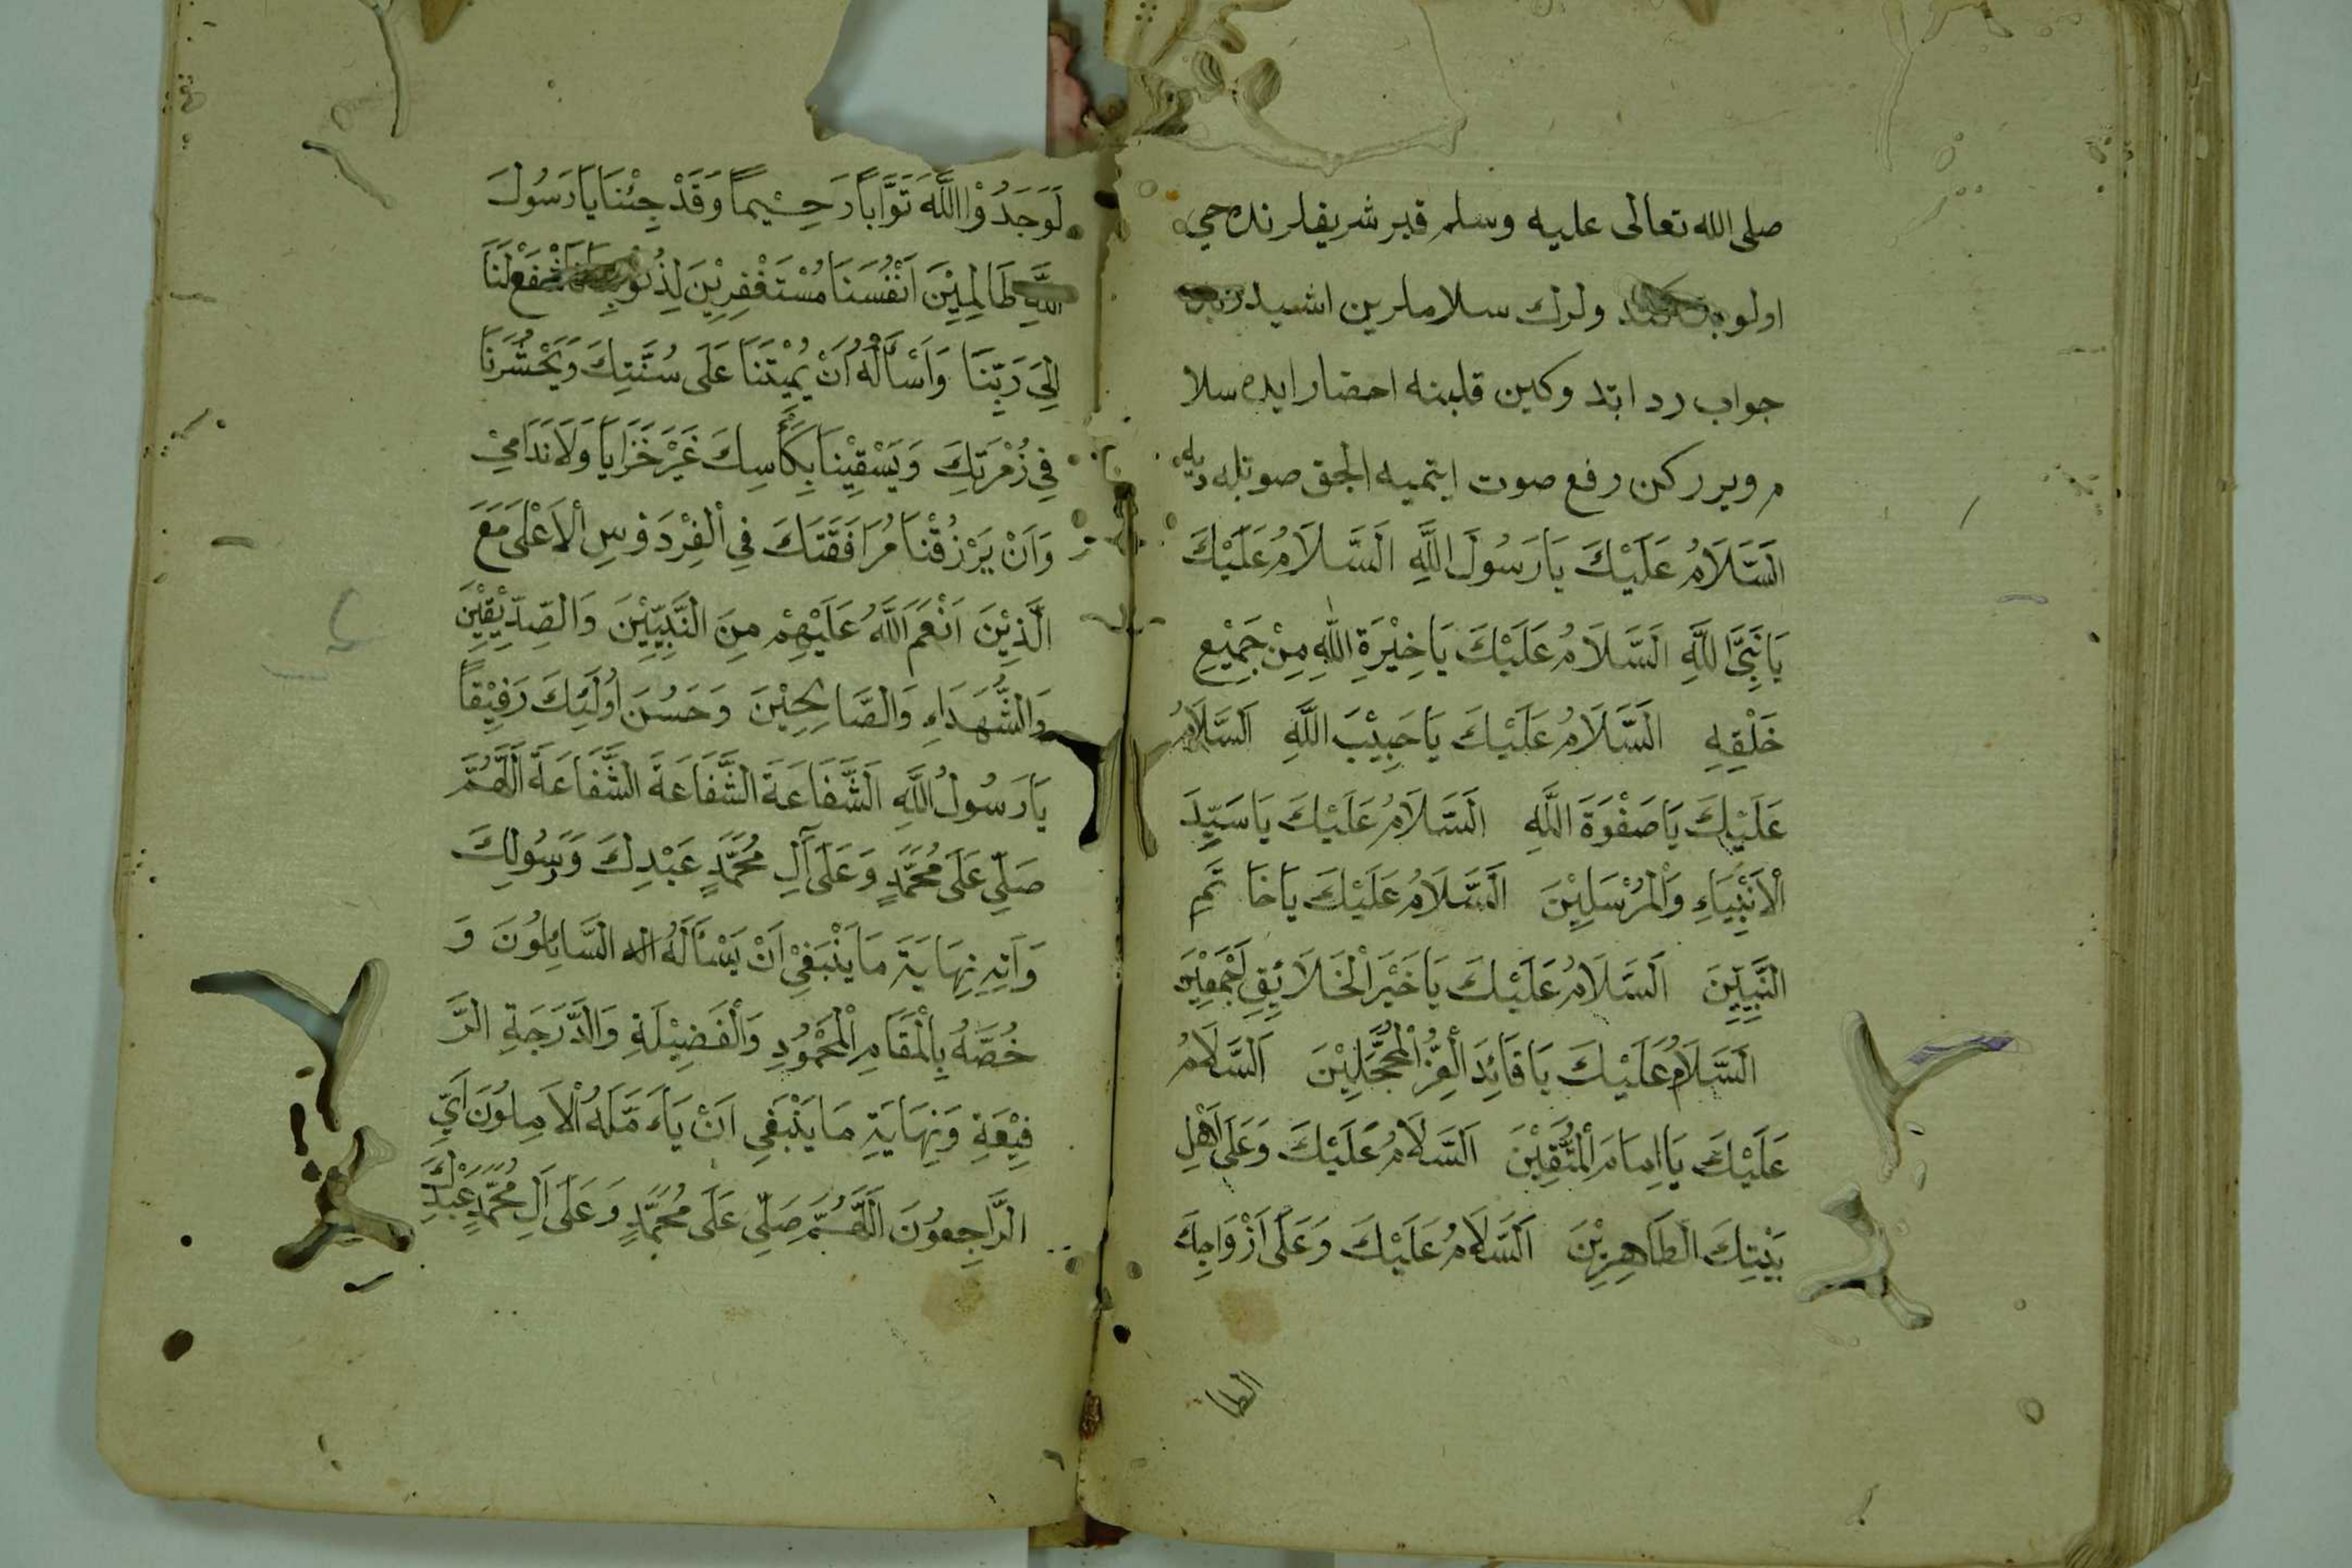 صلى الله تعالى عليه وسلم قبر شريفلرنده حي
اولوب ولرك سلاملرين اشيدر
جواب رد ايتد وكين قلبنه احضار ايده سلا
م ويرركن رفع صوت ايتميه الجق صوتله ديه
اَلسَّلَامُ عَلَيْكَ يَا رَسُولَ اللَّهِ اَلسَّلَامُ عَلَيْكَ
يَا نَبِيَّ اللَّهِ اَلسَّلَامُ عَلَيْكَ يَا خِيْرَةِ اللَّهِ مِنْ جَمِيْعِ
خَلْقِهِ اَلسَّلَامُ عَلَيْكَ يَا حَبِيْبَ اللَّهِ اَلسَّلَامُ
عَلَيْكَ يَا صَفْوَةَ اللَّهِ اَلسَّلَامُ عَلَيْكَ يَا سَيِّدَ
الْاَنْبِيَاءِ وَالْمُرْسَلِيْنَ اَلسَّلَامُ عَلَيْكَ يَا خَاتَمِ
النَّبِيِّينَ اَلسَّلَامُ عَلَيْكَ يَا خَيْرَ الْخَلَائِقِ اَجْمَعِيْنَ
اَلسَّلَامُ عَلَيْكَ يَا قَائِدَ الْغِرُّ الْمُحَجَّلِيْنَ اَلسَّلَامُ
عَلَيْكَ يَا اِمَامَ الْمُتَّقِيْنَ اَلسَّلَامُ عَلَيْكَ وَعَلَى اَهْلِ
بَيْتِكَ الطَاهِرِيْنَ اَلسَّلَامُ عَلَيْكَ وَعَلَى اَزْوَاجِكَ
الطا
لَوَجَدُوْا اللَّهَ تَوَّاباً رَحِيْماً وَقَدْ جِئْنَا يَا رَسُولَ
اللَّهِ ظَالِمِيْنَ اَنْفُسَنَا مُسْتَغْفِرِيْنَ لِذُنُوْبِنَا فَاشْفَعْ لَنَا
اِلَى رَبِّنَا وَاَسْأَلْهُ اَنْ يُمِيْتَنَا عَلَى سُنَّتِكَ وَيَحْشُرَنَا
فِي زُمْرَتِكَ وَيَسْقِيْنَا بِكَأْسِكَ غَيْرَ خَزَايَا وَلَا نَدَامَيْ
وَاَنْ يَرْزُقْنَا مُرَافَقَتَكَ فِي الْفِرْدَوْسِ الْاَعْلَى مَعَ
الَّذِيْنَ اَنْعَمَ اللَّهُ عَلَيْهِمْ مِنَ النَّبِيِّيْنَ وَالصِّدِّيْقِيْنَ
وَالشُّهَدَاءِ وَالصَّالِحِيْنَ وَحَسُنَ اُولَئِكَ رَفِيْقاً
يَا رَسُولُ اللَّهِ اَلشَّفَاعَةَ الشَّفَاعَةَ الشَّفَاعَةَ اَللَّهُمَّ
صَلِّي عَلَى مُحَمَّدٍ وَعَلَى آلِ مُحَمَّدٍ عَبْدِكَ وَرَسُولِكَ
وَآتِهِ نِهَايَةَ مَا يَنْبَغِيْ اَنْ يَسْأَلَهُ السَّائِلُونَ وَ
خُصَّهُ بِالْمَقَامِ الْمَحْمُودِ وَالْفَضِيْلَةِ وَالدَّرَجَةِ الرَّ
فِيْعَةِ وَنِهَايَةِ مَا يَنْبَغِي اَنْ يَاَءَمَّلَهُ الْاَمِلُونَ اَيِّ
الرَّاجِعُونَ اَللَّهُمَّ صَلِّي عَلَى مُحَمَّدٍ وَعَلَى اَلِ مُحَمَّدٍ عَبْدِكَ